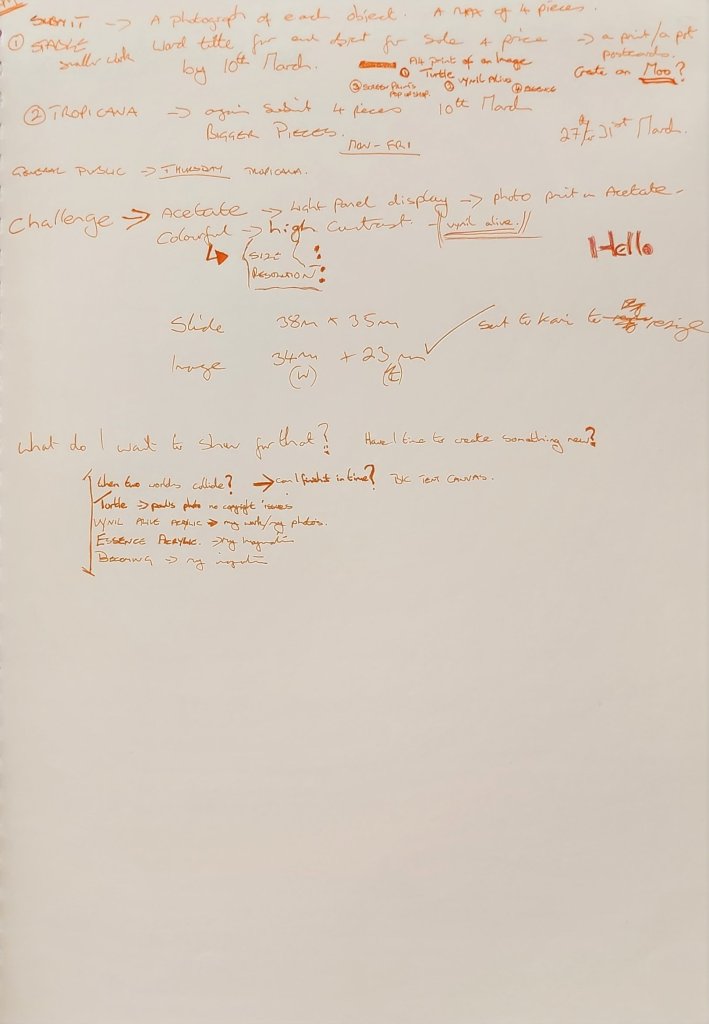 SUBMIT -> A photograph of each object. A MAX of 4 pieces.
① STABLE Word title for each object for sale & price -> a print/a pot
smaller work by 10th March. A4 print of an Image postcards.
① Turtle Create on Moo?
③ SCREEN PRINTS ② Vynil Alive ④ ESSENCE
POP UP SHOP.
② TROPICANA -> again submit 4 pieces 10th March
BIGGER PIECES. 27th 31st March.
MON-FRI
GENERAL PUBLIC -> THURSDAY TROPICANA.
Challenge -> Acetate -> Light panel display -> photo print on Acetate -
Colourful -> high contrast - vynil alive.
Hello
SIZE :
RESOLUTION:
Slide 38m x 35m sent to to resize
Image 34m + 23m
(W)
What do I want to show for that? Have I time to create something new?
When two worlds collide? -> can I finish it in time? TENT CANVAS.
Turtle -> pauls photo no copyright issues
VYNIL ALIVE ACRYLIC -> my work/my photos.
ESSENCE ACRYLIC. -> my imagination
BECOMING -> my imagination